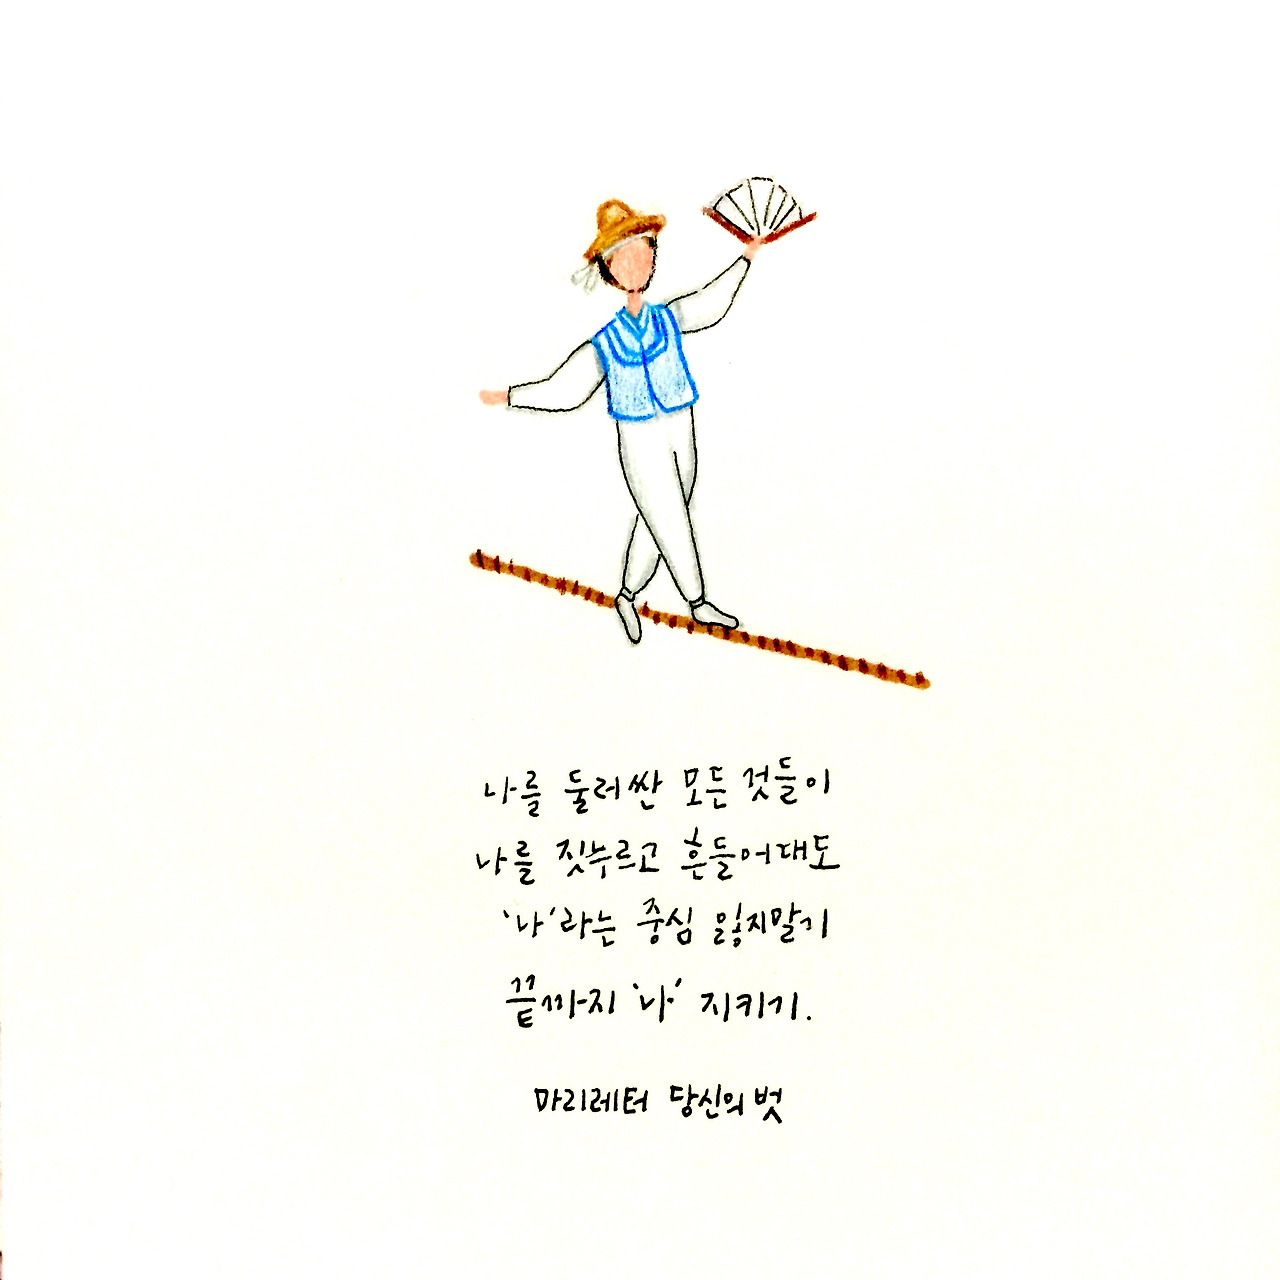 나를 둘러싼 모든 것들이
나를 짓누르고 흔들어대도
'나'라는 중심 잃지말기
끝까지 '나' 지키기.
마리레터 당신의 벗